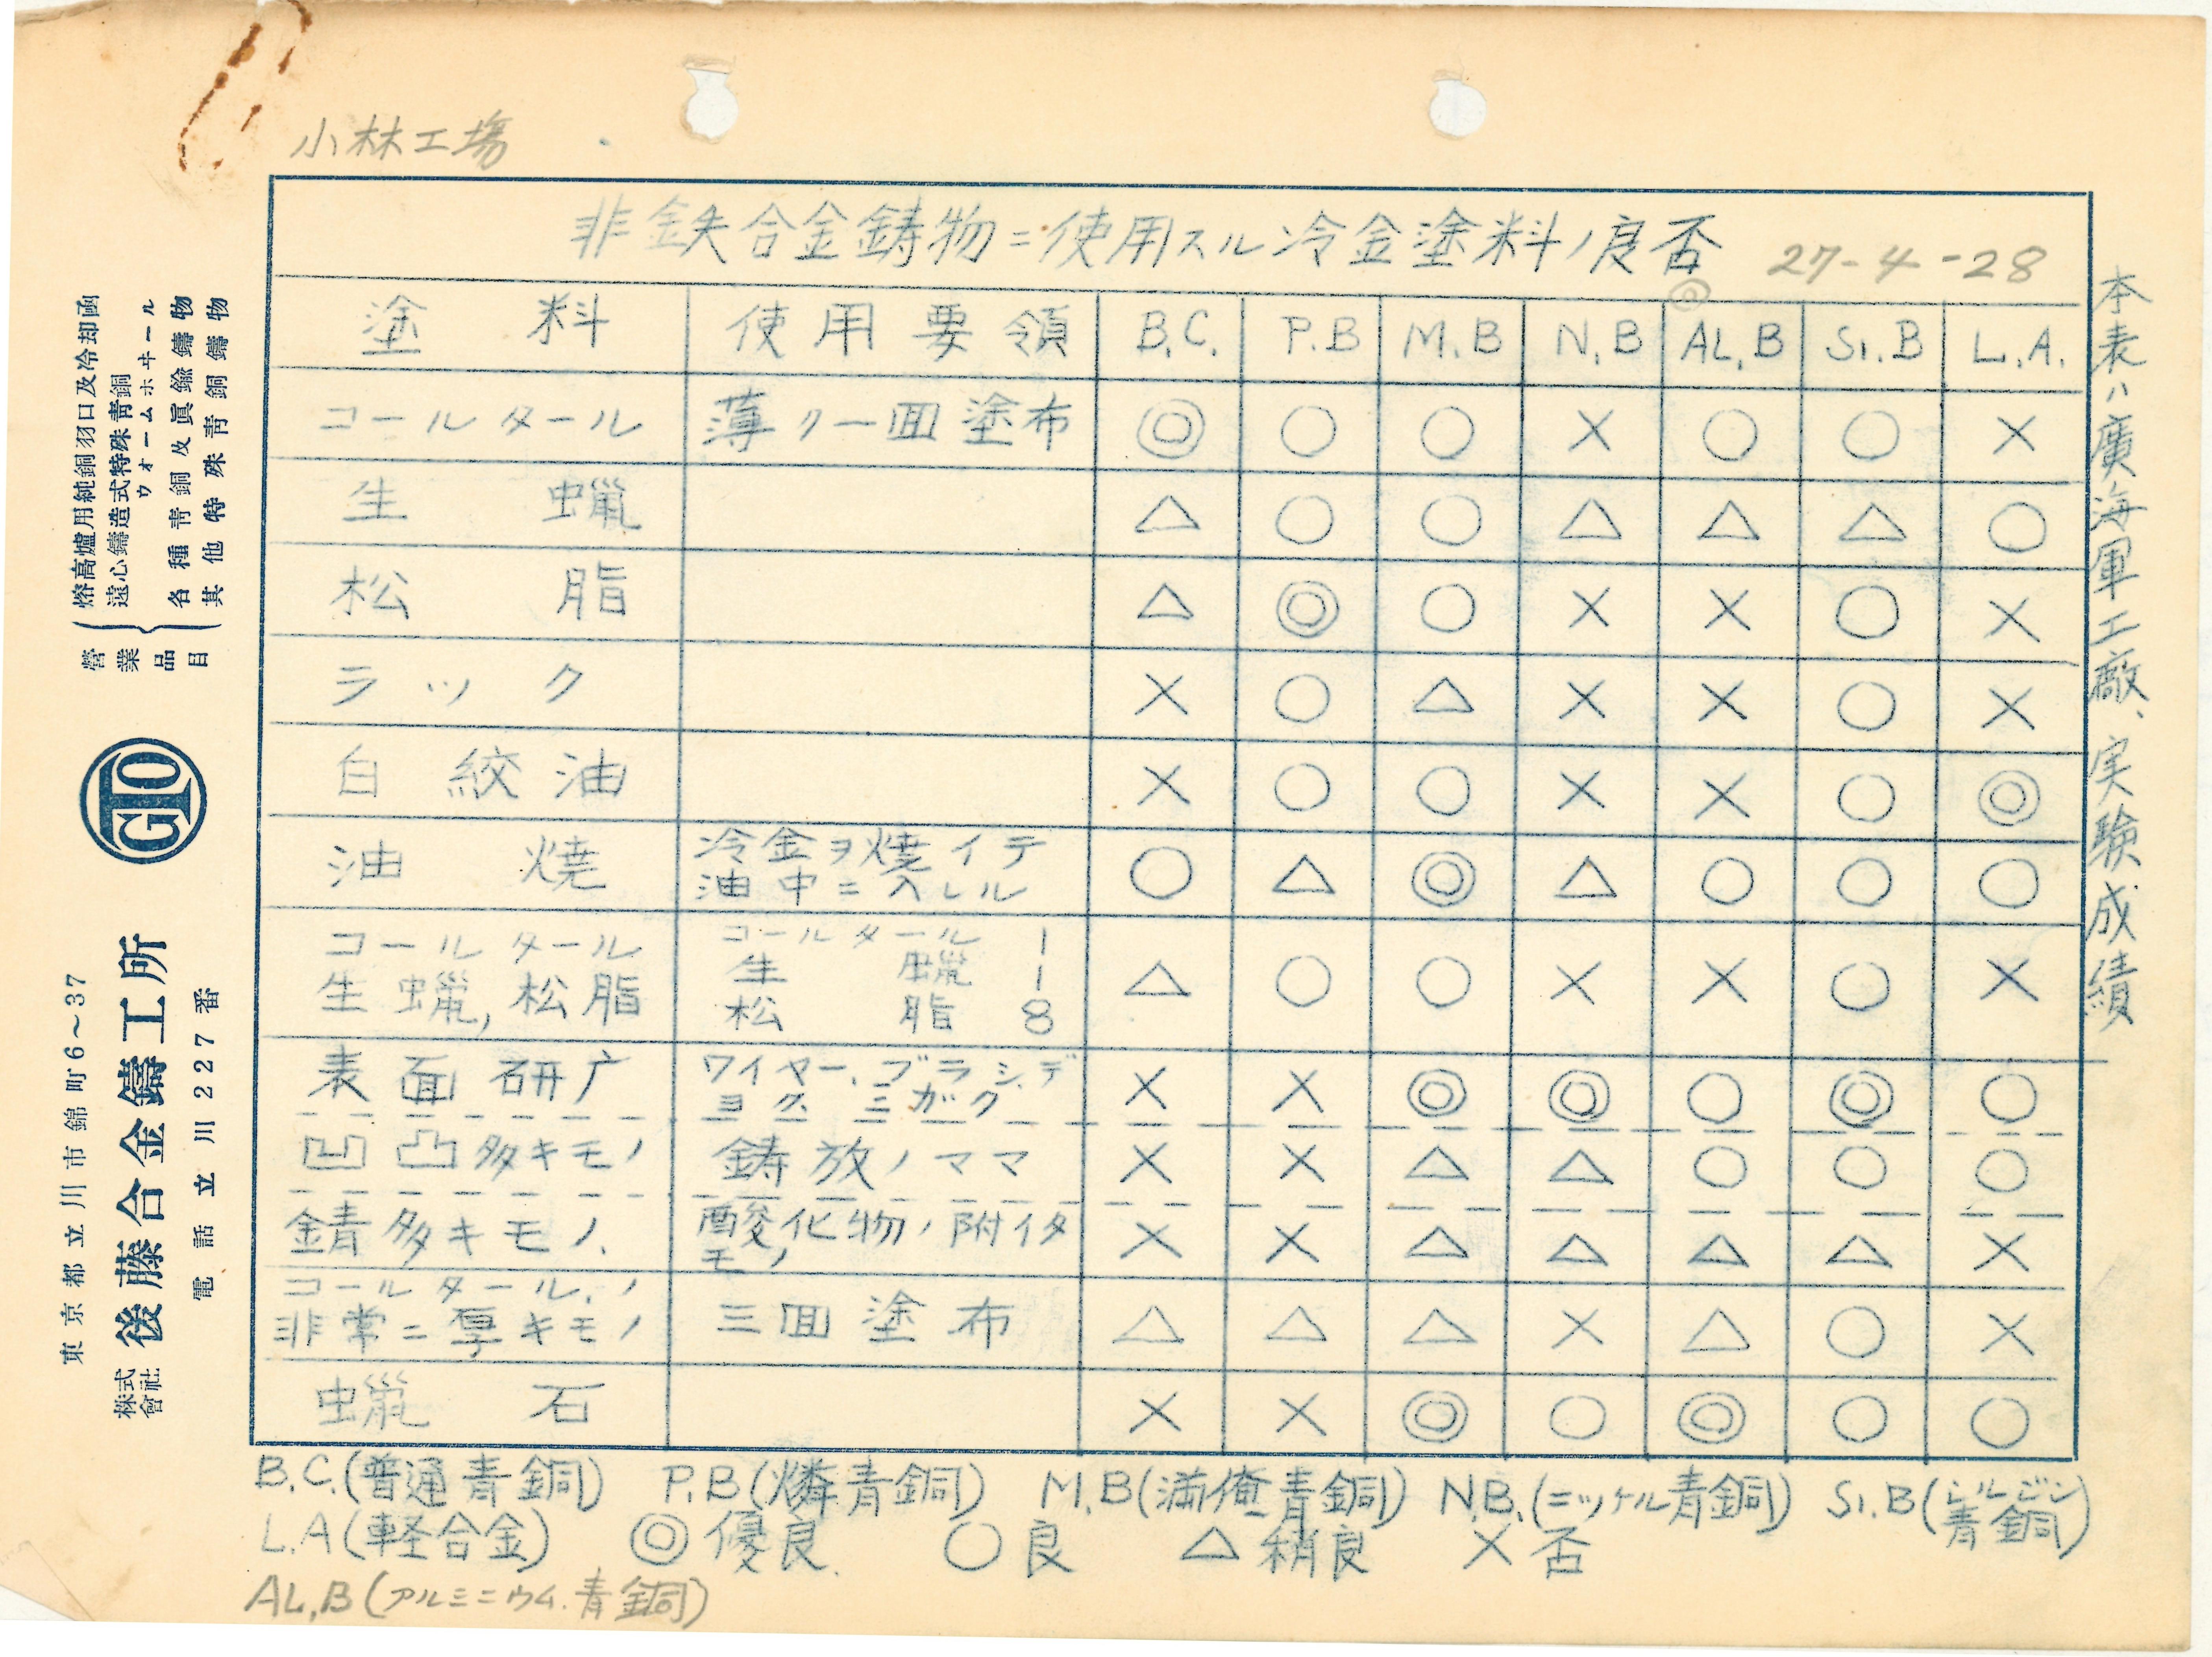 小林工場
非鉄合金鋳物ニ使用スル冷金塗料ノ良否 27-4-28
塗料 使用要領 B.C. P.B M.B N.B AL.B Si.B L.A.
◎
コールタール 薄ク一面塗布 ◎ ○ ○ × ○ ○ ×
生蠟 △ ○ ○ △ △ △ ○
松脂 △ ◎ ○ × × ○ ×
ラック × ○ △ × × ○ ×
白絞油 × ○ ○ × × ○ ◎
油焼 冷金ヲ焼イテ油中ニ入レル ○ △ ◎ △ ○ ○ ○
コールタール生蠟,松脂 コールタール 1 生蠟 1 松脂 8 △ ○ ○ × × ○ ×
表面研广 ワイヤー、ブラシ、デヨク ミガク × × ◎ ◎ ○ ◎ ○
凹凸多キモノ 鋳放ノママ × × △ △ ○ ○ ○
錆多キモノ、 酸化物ノ附イタモノ × × △ △ △ △ ×
コールタール、ノ非常ニ厚キモノ 三面塗布 △ △ △ × △ ○ ×
蠟石 × × ◎ ○ ◎ ○ ○
B.C.(普通青銅) P.B(燐青銅) M.B(満俺青銅) N.B.(ニッケル青銅) Si.B(シルジン青銅)
L.A(軽合金) ◎優良. ○良 △稍良 ×否
AL.B(アルミニウム.青銅)
本表ハ廣海軍工廠、実験成績
熔高爐用純銅羽口及冷却函
遠心鑄造式特殊青銅
ウォームホヰール
各種青銅及眞鍮鑄物
其他特殊青銅鑄物
營業品目
GTO
東京都立川市錦町6～37
株式會社 後藤合金鑄工所
電話立川227番